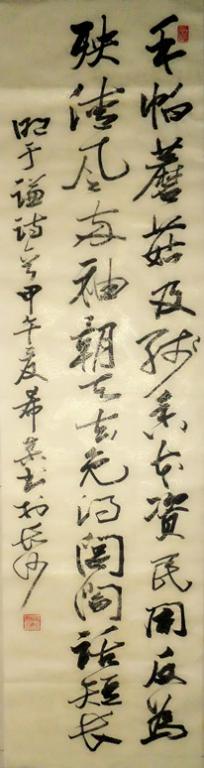 手帕蘑菇及线香本资民用反为
殃清风两袖朝天去免得闾阎话短长
明于谦诗一首甲午夏希 书于长沙